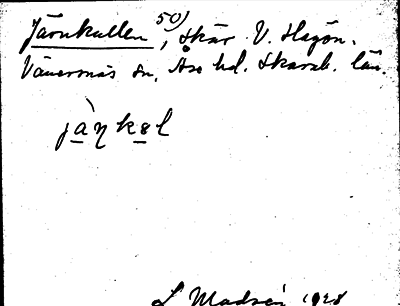 Järnkullen 50), skär V. Hagön.
Vänernäs sn, Åse hd. Skarab. län.
jàŋkəl
L Madsén 1928